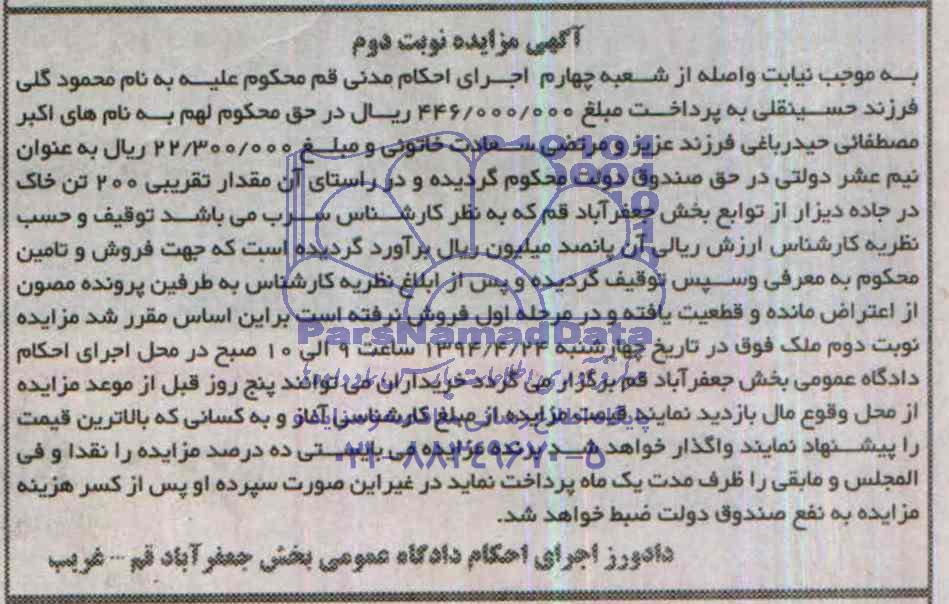 آگهی مزایده نوبت دوم
به موجب نیابت واصله از شعبه چهارم اجرای احکام مدنی قم محکوم علیه به نام محمود گلی
فرزند حسینقلی به پرداخت مبلغ ۴۴۶/۰۰۰/۰۰۰ ریال در حق محکوم لهم به نام های اکبر
مصطفائی حیدرباغی فرزند عزیز و مرتضی سعادت خاتونی و مبلغ ۲۲/۳۰۰/۰۰۰ ریال به عنوان
نیم عشر دولتی در حق صندوق دولت محکوم گردیده و در راستای آن مقدار تقریبی ۲۰۰ تن خاک
در جاده دیزار از توابع بخش جعفرآباد قم که به نظر کارشناس سرب می باشد توقیف و حسب
نظریه کارشناس ارزش ریالی آن پانصد میلیون ریال برآورد گردیده است که جهت فروش و تامین
محکوم به معرفی وسپس توقیف گردیده و پس از ابلاغ نظریه کارشناس به طرفین پرونده مصون
از اعتراض مانده و قطعیت یافته و در مرحله اول فروش نرفته است براین اساس مقرر شد مزایده
نوبت دوم ملک فوق در تاریخ چهارشنبه ۱۳۹۴/۴/۲۴ ساعت ۹ الی ۱۰ صبح در محل اجرای احکام
دادگاه عمومی بخش جعفرآباد قم برگزار می گردد خریداران می توانند پنج روز قبل از موعد مزایده
از محل وقوع مال بازدید نمایند قیمت مزایده از مبلغ کارشناسی آغاز و به کسانی که بالاترین قیمت
را پیشنهاد نمایند واگذار خواهد شد برنده مزایده می بایستی ده درصد مزایده را نقدا و فی
المجلس و مابقی را ظرف مدت یک ماه پرداخت نماید در غیراین صورت سپرده او پس از کسر هزینه
مزایده به نفع صندوق دولت ضبط خواهد شد.
دادورز اجرای احکام دادگاه عمومی بخش جعفرآباد قم -- غریب
ParsNamadData
۰۲۱-۸۸۳۴۹۶۷۰-۵